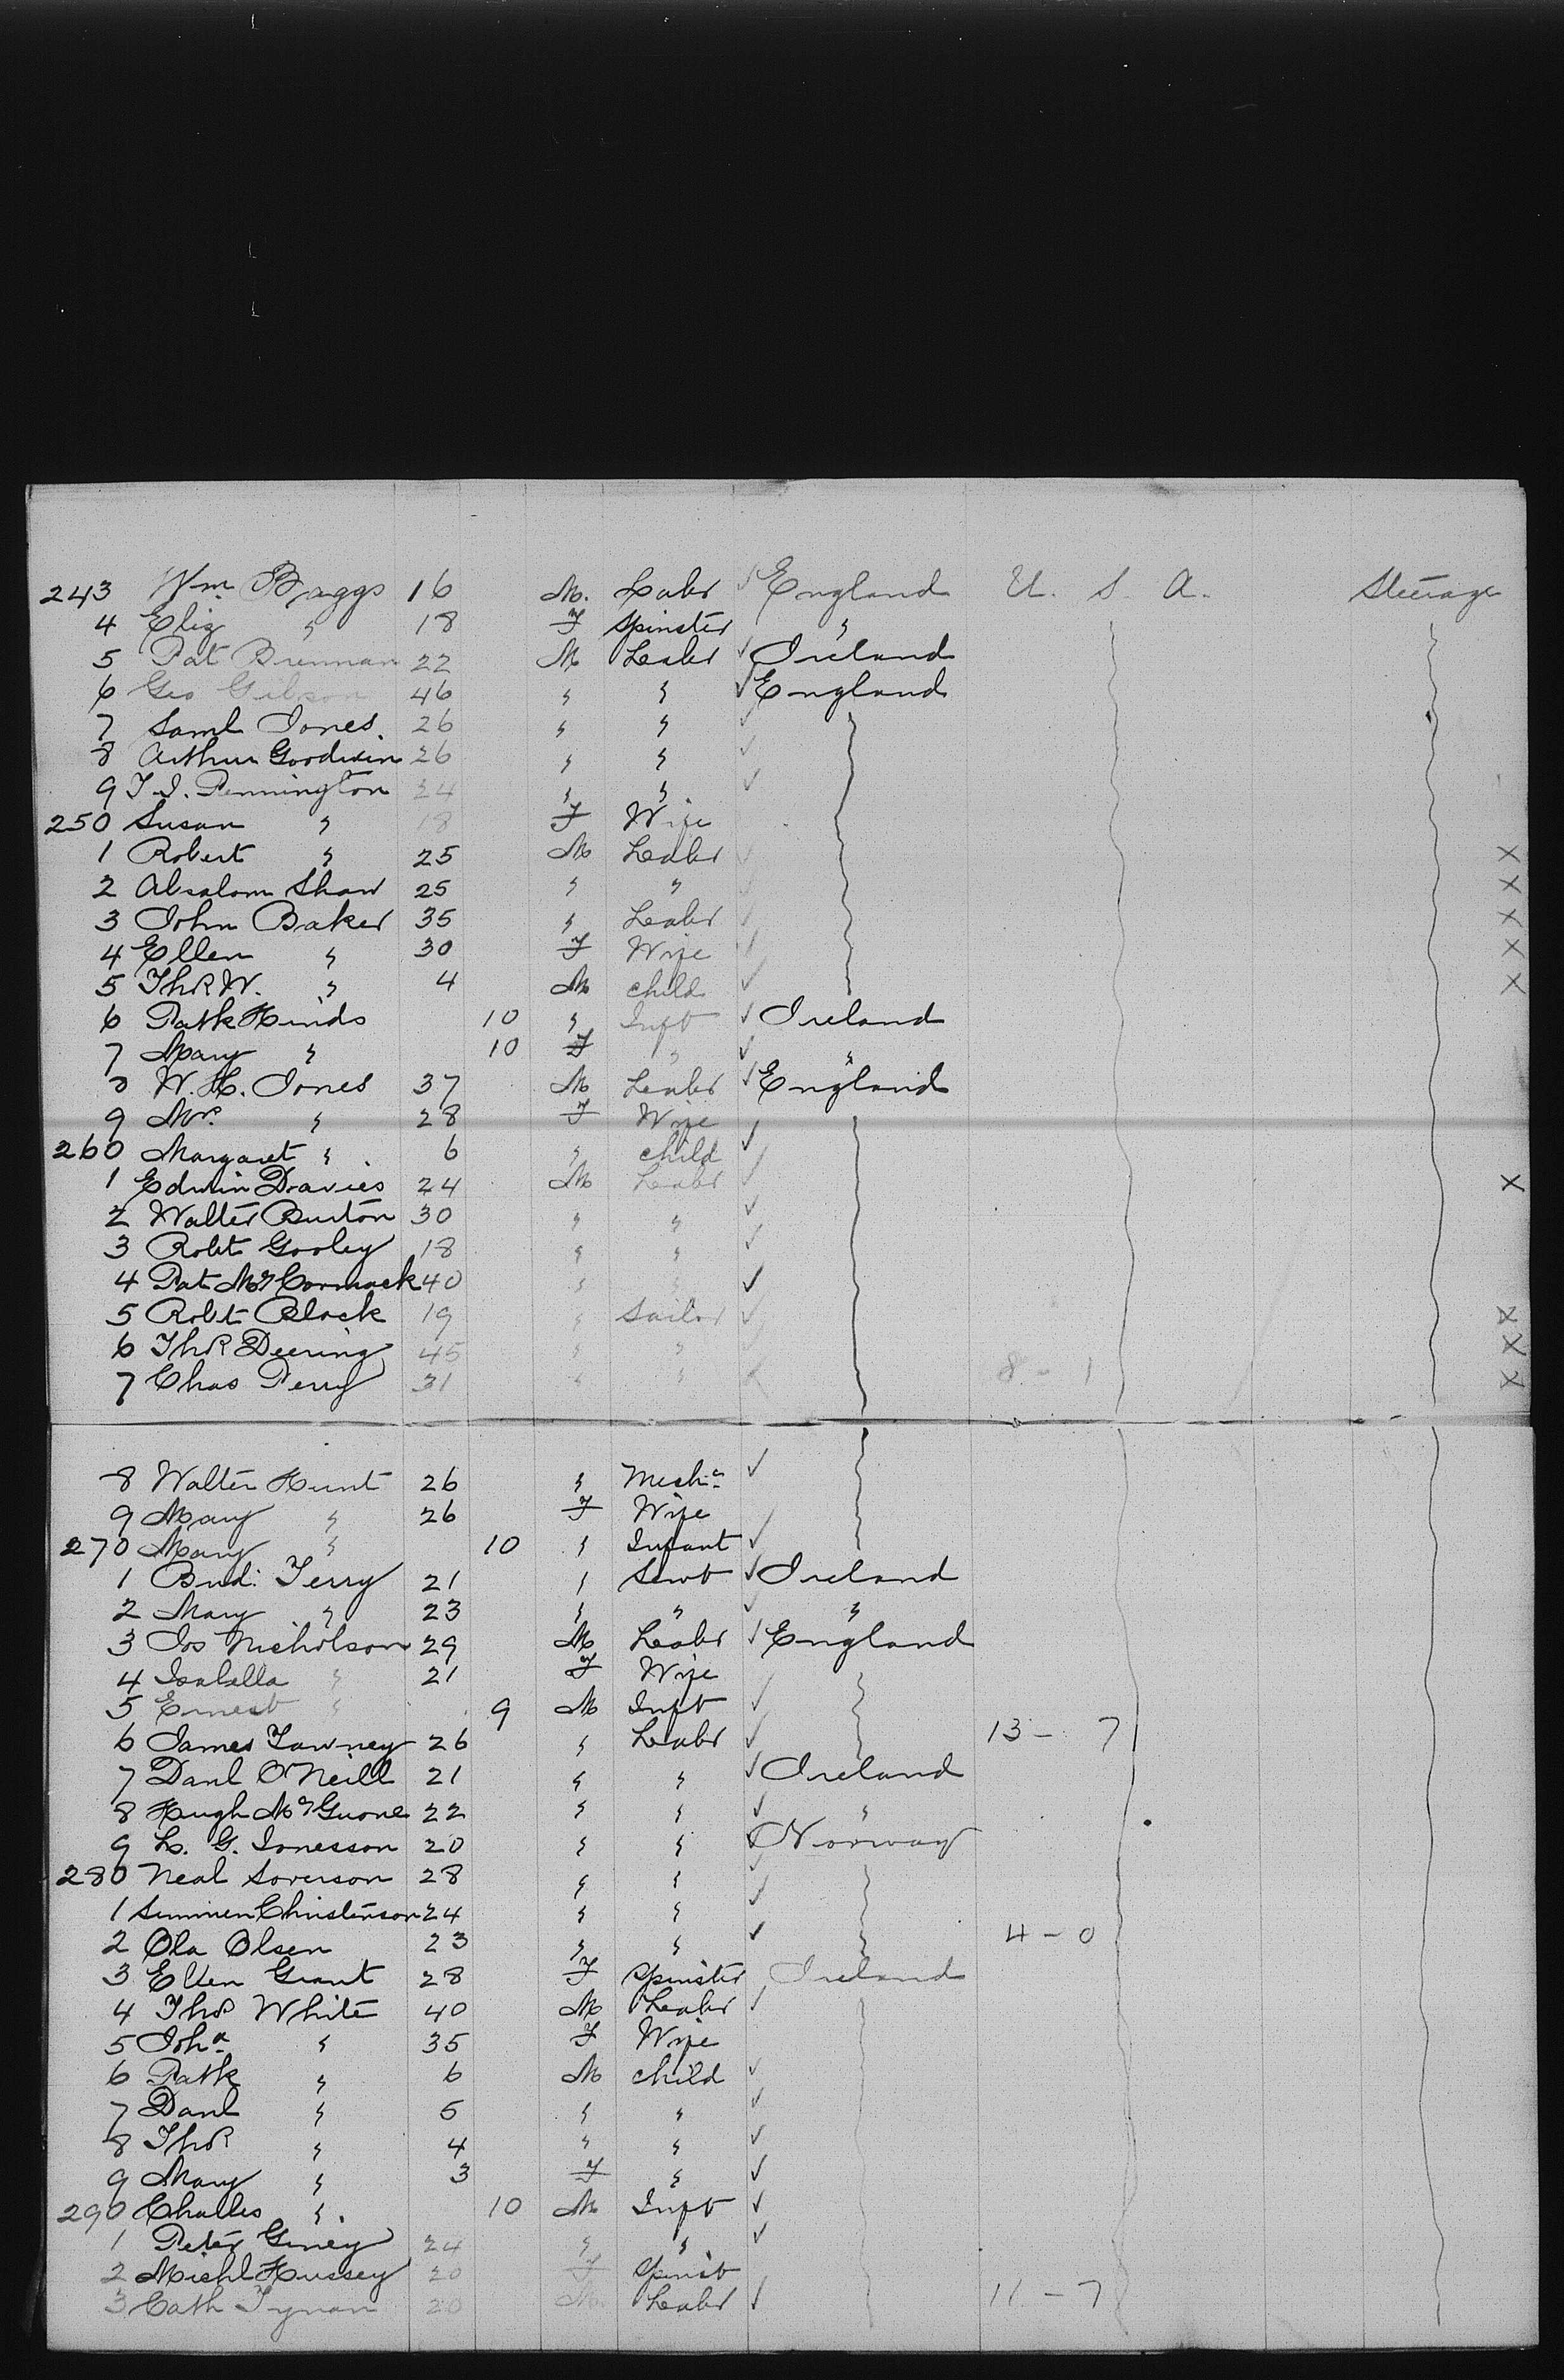 243 Wm Baggs 16 M. Labr ✓ England U. S. A. Steerage
4 Eliz " 18 F Spinster "
5 Pat Brennan 22 M Labr ✓ Ireland
6 Geo Gibson 46 " " ✓ England
7 Saml Jones. 26 " " ✓
8 Arthur Goodwin 26 " " ✓
9 T. J. Pennington 24 " " ✓
250 Susan " 18 F Wife
1 Robert " 25 M Labr ✓ X
2 Absalom Shaw 25 " " ✓ X
3 John Baker 35 " Labr ✓ X
4 Ellen " 30 F Wife ✓ X
5 Thos W. " 4 M child ✓ X
6 Patk Hinds 10 " Inft ✓ Ireland
7 Mary " 10 F " ✓ "
8 W. H. Jones 37 M Labr ✓ England
9 Mrs " 28 F Wife
260 Margaret " 6 " child ✓
1 Edwin Davies 24 M Labr ✓ X
2 Walter Burton 30 " " ✓
3 Robt Gooley 18 " " ✓
4 Pat McCormack 40 " " ✓
5 Robt Block 19 " Sailor ✓ X
6 Thos Deering 45 " " ✓ X
7 Chas Perry 31 " " ✓ 8 - 1 X
8 Walter Hunt 26 " Mechc ✓
9 Mary " 26 F Wife
270 Mary " 10 " Infant ✓
1 Brid. Terry 21 " Servt ✓ Ireland
2 Mary " 23 " " ✓ "
3 Jos Nicholson 29 M Labr ✓ England
4 Isabella " 21 F Wife
5 Ernest " 9 M Inft ✓
6 James Tawney 26 " Labr ✓ 13 - 7
7 Danl O'Neill 21 " " ✓ Ireland
8 Hugh McGuone 22 " " ✓ "
9 L. G. Jonesson 20 " " ✓ Norway
280 Neal Soverson 28 " " ✓
1 Simmen Christenson 24 " " ✓
2 Ola Olsen 23 " " ✓ 4 - 0
3 Ellen Grant 28 F Spinster Ireland
4 Thos White 40 M Labr ✓
5 Joha " 35 F Wife
6 Patk " 6 M child ✓
7 Danl " 5 " " ✓
8 Thos " 4 " " ✓
9 Mary " 3 F " ✓
290 Challes " 10 M Inft ✓
1 Peter Geney 24 " " ✓
2 Michl Hussey 20 F Spinst
3 Cath Tynan 20 M. Labr ✓ 11 - 7